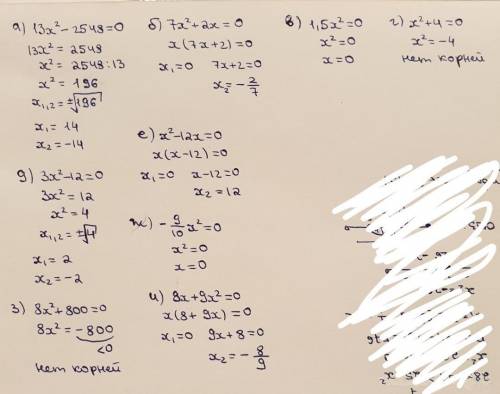 а) 13x² - 2548 = 0
13x² = 2548
x² = 2548 : 13
x² = 196
x₁,₂ = ±√196
x₁ = 14
x₂ = -14
б) 7x² + 2x = 0
x(7x + 2) = 0
x₁ = 0 7x + 2 = 0
x₂ = -2/7
в) 1,5x² = 0
x² = 0
x = 0
г) x² + 4 = 0
x² = -4
нет корней
д) 3x² - 12 = 0
3x² = 12
x² = 4
x₁,₂ = ±√4
x₁ = 2
x₂ = -2
е) x² - 12x = 0
x(x - 12) = 0
x₁ = 0 x - 12 = 0
x₂ = 12
ж) -9/10 x² = 0
x² = 0
x = 0
з) 8x² + 800 = 0
8x² = -800
<0
нет корней
и) 8x + 9x² = 0
x(8 + 9x) = 0
x₁ = 0 9x + 8 = 0
x₂ = -8/9